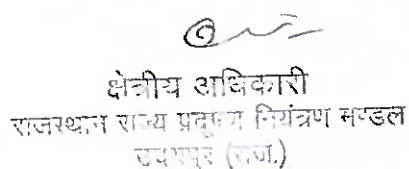 क्षेत्रीय अधिकारी
राजस्थान राज्य प्रदूषण नियंत्रण मण्डल
उदयपुर (राज.)